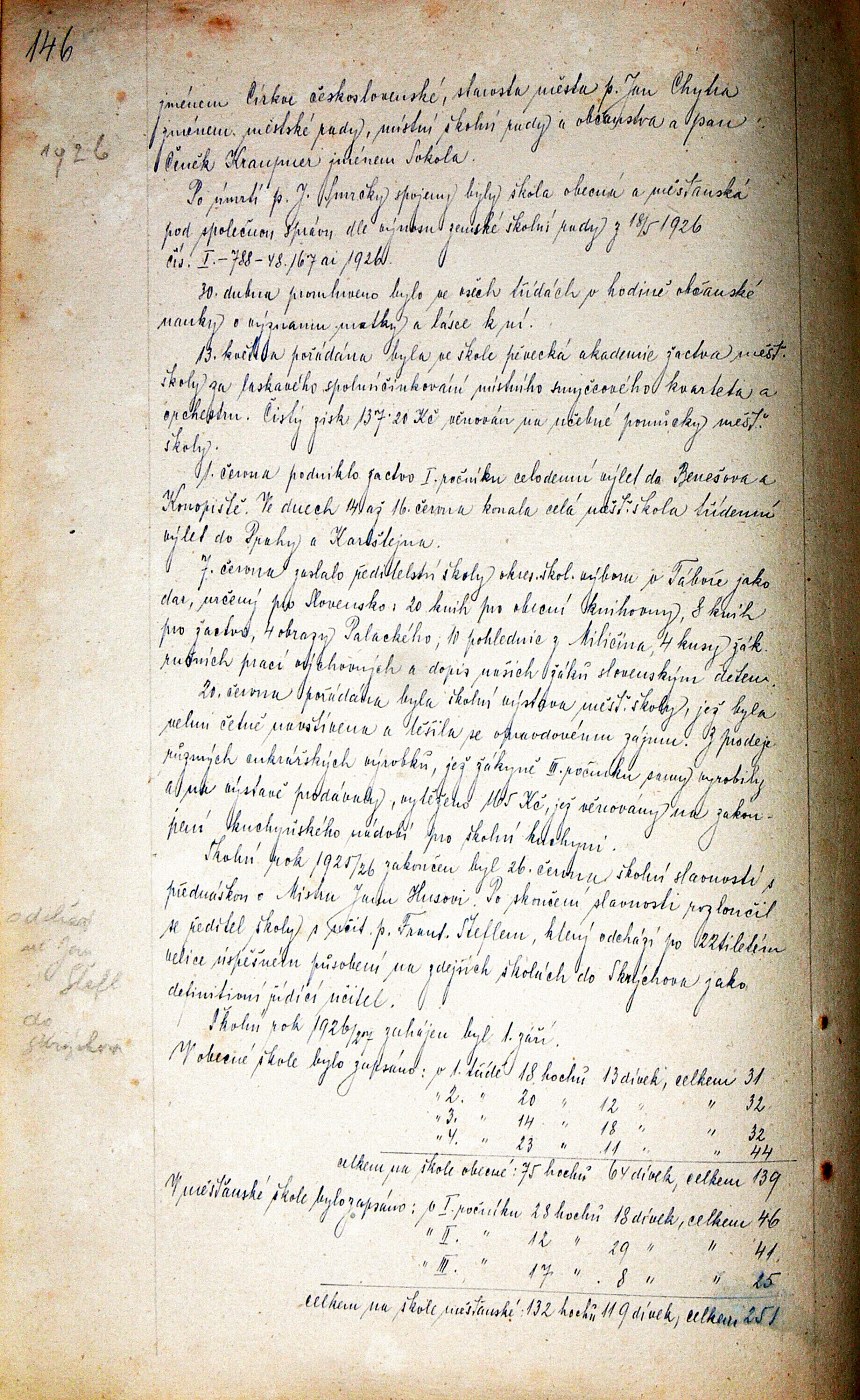 146
jménem Církve československé, starosta města p. Jan Chytra
jménem městské rady, místní školní rady a občanstva a pan
1926
Čeněk Kraupner jménem Sokola.
Po úmrtí p. J. Smrčky spojeny byly škola obecná a měšťanská
pod společnou správu dle výnosu zemské školní rady z 18/5 1926
čís. I.-788-48.167 ai 1926.
30. dubna promluveno bylo ve všech třídách v hodině občanské
nauky o významu matky a lásce k ní.
13. května pořádána byla ve škole pěvecká akademie žactva měšť.
školy za laskavého spoluúčinkování místního smyčcového kvarteta a
orchestru. Čistý zisk 137·20 Kč věnován na učebné pomůcky měšť.
školy.
1. června podniklo žactvo I. ročníku celodenní výlet do Benešova a
Konopiště. Ve dnech 14 až 16. června konala celá měšť. škola třídenní
výlet do Prahy a Karlštejna.
7. června zaslalo ředitelství školy okres. škol. výboru v Táboře jako
dar, určený pro Slovensko: 20 knih pro obecní knihovny, 8 knih
pro žactvo, 4 obrazy Palackého, 10 pohlednic z Miličína, 4 kusy žák.
ručních prací výchovných a dopis našich žáků slovenským dětem.
20. června pořádána byla školní výstava měšť. školy, jež byla
velmi četně navštívena a těšila se opravdovému zájmu. Z prodeje
různých cukrářských výrobků, jež žákyně III. ročníku samy vyrobily
a na výstavě prodávaly, vytěženo 165 Kč, jež věnovány na zakou-
pení kuchyňského nádobí pro školní kuchyni.
Školní rok 1925/26 zakončen byl 26. června školní slavností s
přednáškou o Mistru Janu Husovi. Po skončení slavnosti rozloučil
odchod
se ředitel školy s učit. p. Frant. Šteflem, který odchází po 22tiletém
Štefl
velice úspěšném působení na zdejších školách do Skrýchova jako
definitivní řídící učitel.
do
Skrýchova
Školní rok 1926/27 zahájen byl 1. září.
V obecné škole bylo zapsáno: v 1. třídě 18 hochů 13 dívek, celkem 31
" 2. " 20 " 12 " " 32
" 3. " 14 " 18 " " 32
" 4. " 23 " 11 " " 44
celkem na škole obecné: 75 hochů 64 dívek, celkem 139
V měšťanské škole bylo zapsáno: v I. ročníku 28 hochů 18 dívek, celkem 46
" II. " 12 " 29 " " 41.
" III. " 17 " 8 " " 25
celkem na škole měšťanské: 132 hochů 119 dívek, celkem 251